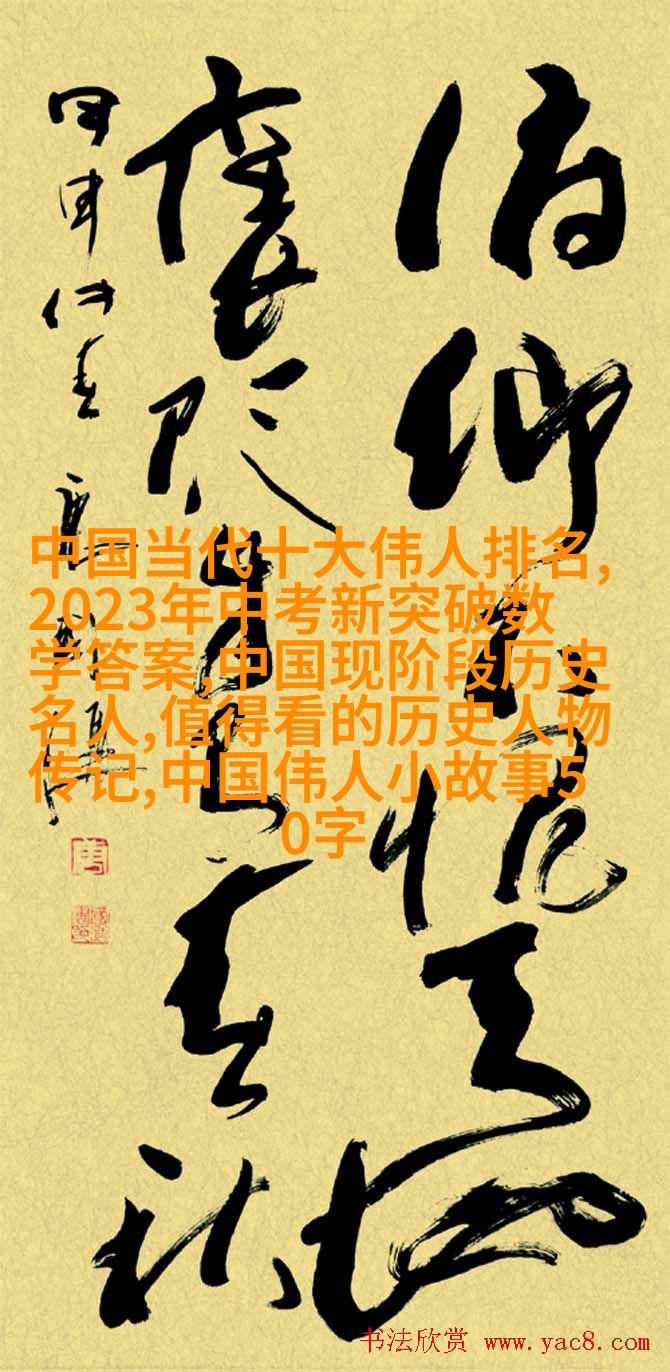 俯仰愧天地
褒贬自有春秋
甲申仲春
中国当代十大伟人排名,
2023年中考新突破数
学答案,中国现阶段历史
名人,值得看的历史人物
传记,中国伟人小故事5
0字
书法欣赏 www.yac8.com